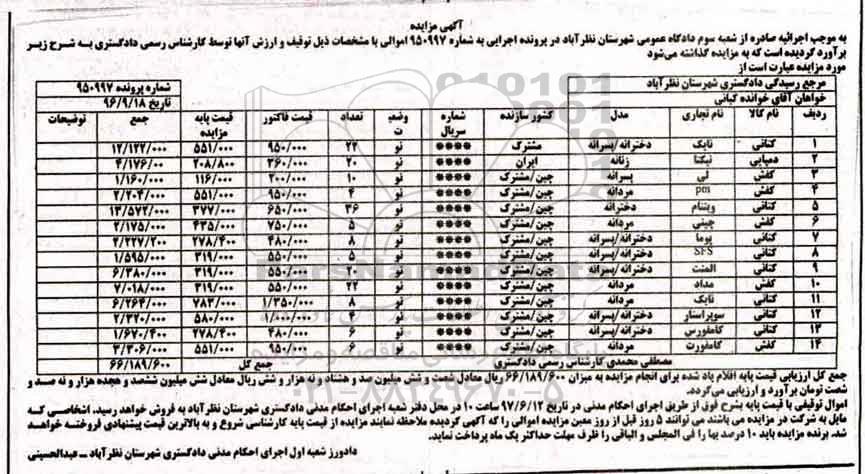 آگهی مزایده
به موجب اجرائیه صادره از شعبه سوم دادگاه عمومی شهرستان نظرآباد در پرونده اجرایی به شماره ۹۵۰۹۹۷ اموالی با مشخصات ذیل توقیف و ارزش آنها توسط کارشناس رسمی دادگستری به شرح زیر
برآورد گردیده است که به مزایده گذاشته می‌شود
مورد مزایده عبارت است از
مرجع رسیدگی دادگستری شهرستان نظرآباد شماره پرونده ۹۵۰۹۹۷
خواهان آقای خوانده کیانی تاریخ ۹۶/۹/۱۸
ردیف نام کالا نام تجاری مدل کشور سازنده شماره سریال وضعیت تعداد قیمت فاکتور قیمت پایه مزایده جمع توضیحات
۱ کتانی نایک دخترانه/پسرانه مشترک **** نو ۲۲ ۹۵۰/۰۰۰ ۵۵۱/۰۰۰ ۱۲/۱۲۲/۰۰۰
۲ دمپایی نیکتا زنانه ایران **** نو ۲۰ ۳۶۰/۰۰۰ ۲۰۸/۸۰۰ ۴/۱۷۶/۰۰
۳ کفش لی پسرانه چین/مشترک **** نو ۱۰ ۲۰۰/۰۰۰ ۱۱۶/۰۰۰ ۱/۱۶۰/۰۰۰
۴ کفش pm مردانه چین/مشترک **** نو ۴ ۹۵۰/۰۰۰ ۵۵۱/۰۰۰ ۲/۲۰۴/۰۰۰
۵ کتانی ویتنام دخترانه چین/مشترک **** نو ۳۶ ۶۵۰/۰۰۰ ۳۷۷/۰۰۰ ۱۳/۵۷۲/۰۰۰
۶ کفش چینی مردانه چین/مشترک **** نو ۵ ۷۵۰/۰۰۰ ۴۳۵/۰۰۰ ۲/۱۷۵/۰۰۰
۷ کتانی پوما دخترانه/پسرانه چین/مشترک **** نو ۸ ۴۸۰/۰۰۰ ۲۷۸/۴۰۰ ۲/۲۲۷/۲۰۰
۸ کتانی SFS دخترانه/پسرانه چین/مشترک **** نو ۵ ۵۵۰/۰۰۰ ۳۱۹/۰۰۰ ۱/۵۹۵/۰۰۰
۹ کتانی المنت دخترانه/پسرانه چین/مشترک **** نو ۲۰ ۵۵۰/۰۰۰ ۳۱۹/۰۰۰ ۶/۳۸۰/۰۰۰
۱۰ کفش مداد مردانه چین/مشترک **** نو ۲۲ ۵۵۰/۰۰۰ ۳۱۹/۰۰۰ ۷/۰۱۸/۰۰۰
۱۱ کتانی نایک مردانه چین/مشترک **** نو ۸ ۱/۳۵۰/۰۰۰ ۷۸۳/۰۰۰ ۶/۲۶۴/۰۰۰
۱۲ کتانی سوپراستار دخترانه/پسرانه چین/مشترک **** نو ۴ ۱/۰۰۰/۰۰۰ ۵۸۰/۰۰۰ ۲/۳۲۰/۰۰۰
۱۳ کتانی کامفورس دخترانه/پسرانه چین/مشترک **** نو ۶ ۴۸۰/۰۰۰ ۲۷۸/۴۰۰ ۱/۶۷۰/۴۰۰
۱۴ کفش کامفورت مردانه چین/مشترک **** نو ۶ ۹۵۰/۰۰۰ ۵۵۱/۰۰۰ ۳/۳۰۶/۰۰۰
مصطفی محمدی کارشناس رسمی دادگستری جمع کل ۶۶/۱۸۹/۶۰۰
جمع کل ارزیابی قیمت پایه اقلام یاد شده برای انجام مزایده به میزان ۶۶/۱۸۹/۶۰۰ ریال معادل شصت و شش میلیون صد و هشتاد و نه هزار و شش ریال معادل شش میلیون ششصد و هجده هزار و نه صد و
شصت تومان برآورد و ارزیابی می‌گردد.
اموال توقیفی با قیمت پایه بشرح فوق از طریق اجرای احکام مدنی در تاریخ ۹۷/۶/۱۲ ساعت ۱۰ در محل دفتر شعبه اجرای احکام مدنی دادگستری شهرستان نظرآباد به فروش خواهد رسید. اشخاصی که
مایل به شرکت در مزایده می باشند می توانند ۵ روز قبل از روز معین مزایده اموالی را که آگهی گردیده ملاحظه نمایند مزایده از قیمت پایه کارشناسی شروع و به بالاترین قیمت پیشنهادی فروخته خواهد
شد. برنده مزایده باید ۱۰ درصد بها را فی المجلس و الباقی را ظرف مهلت حداکثر یک ماه پرداخت نماید.
دادورز شعبه اول اجرای احکام مدنی دادگستری شهرستان نظرآباد ـ عبدالحسینی
۰۲۱-۸۸۳۴۹۶۷۰-۵